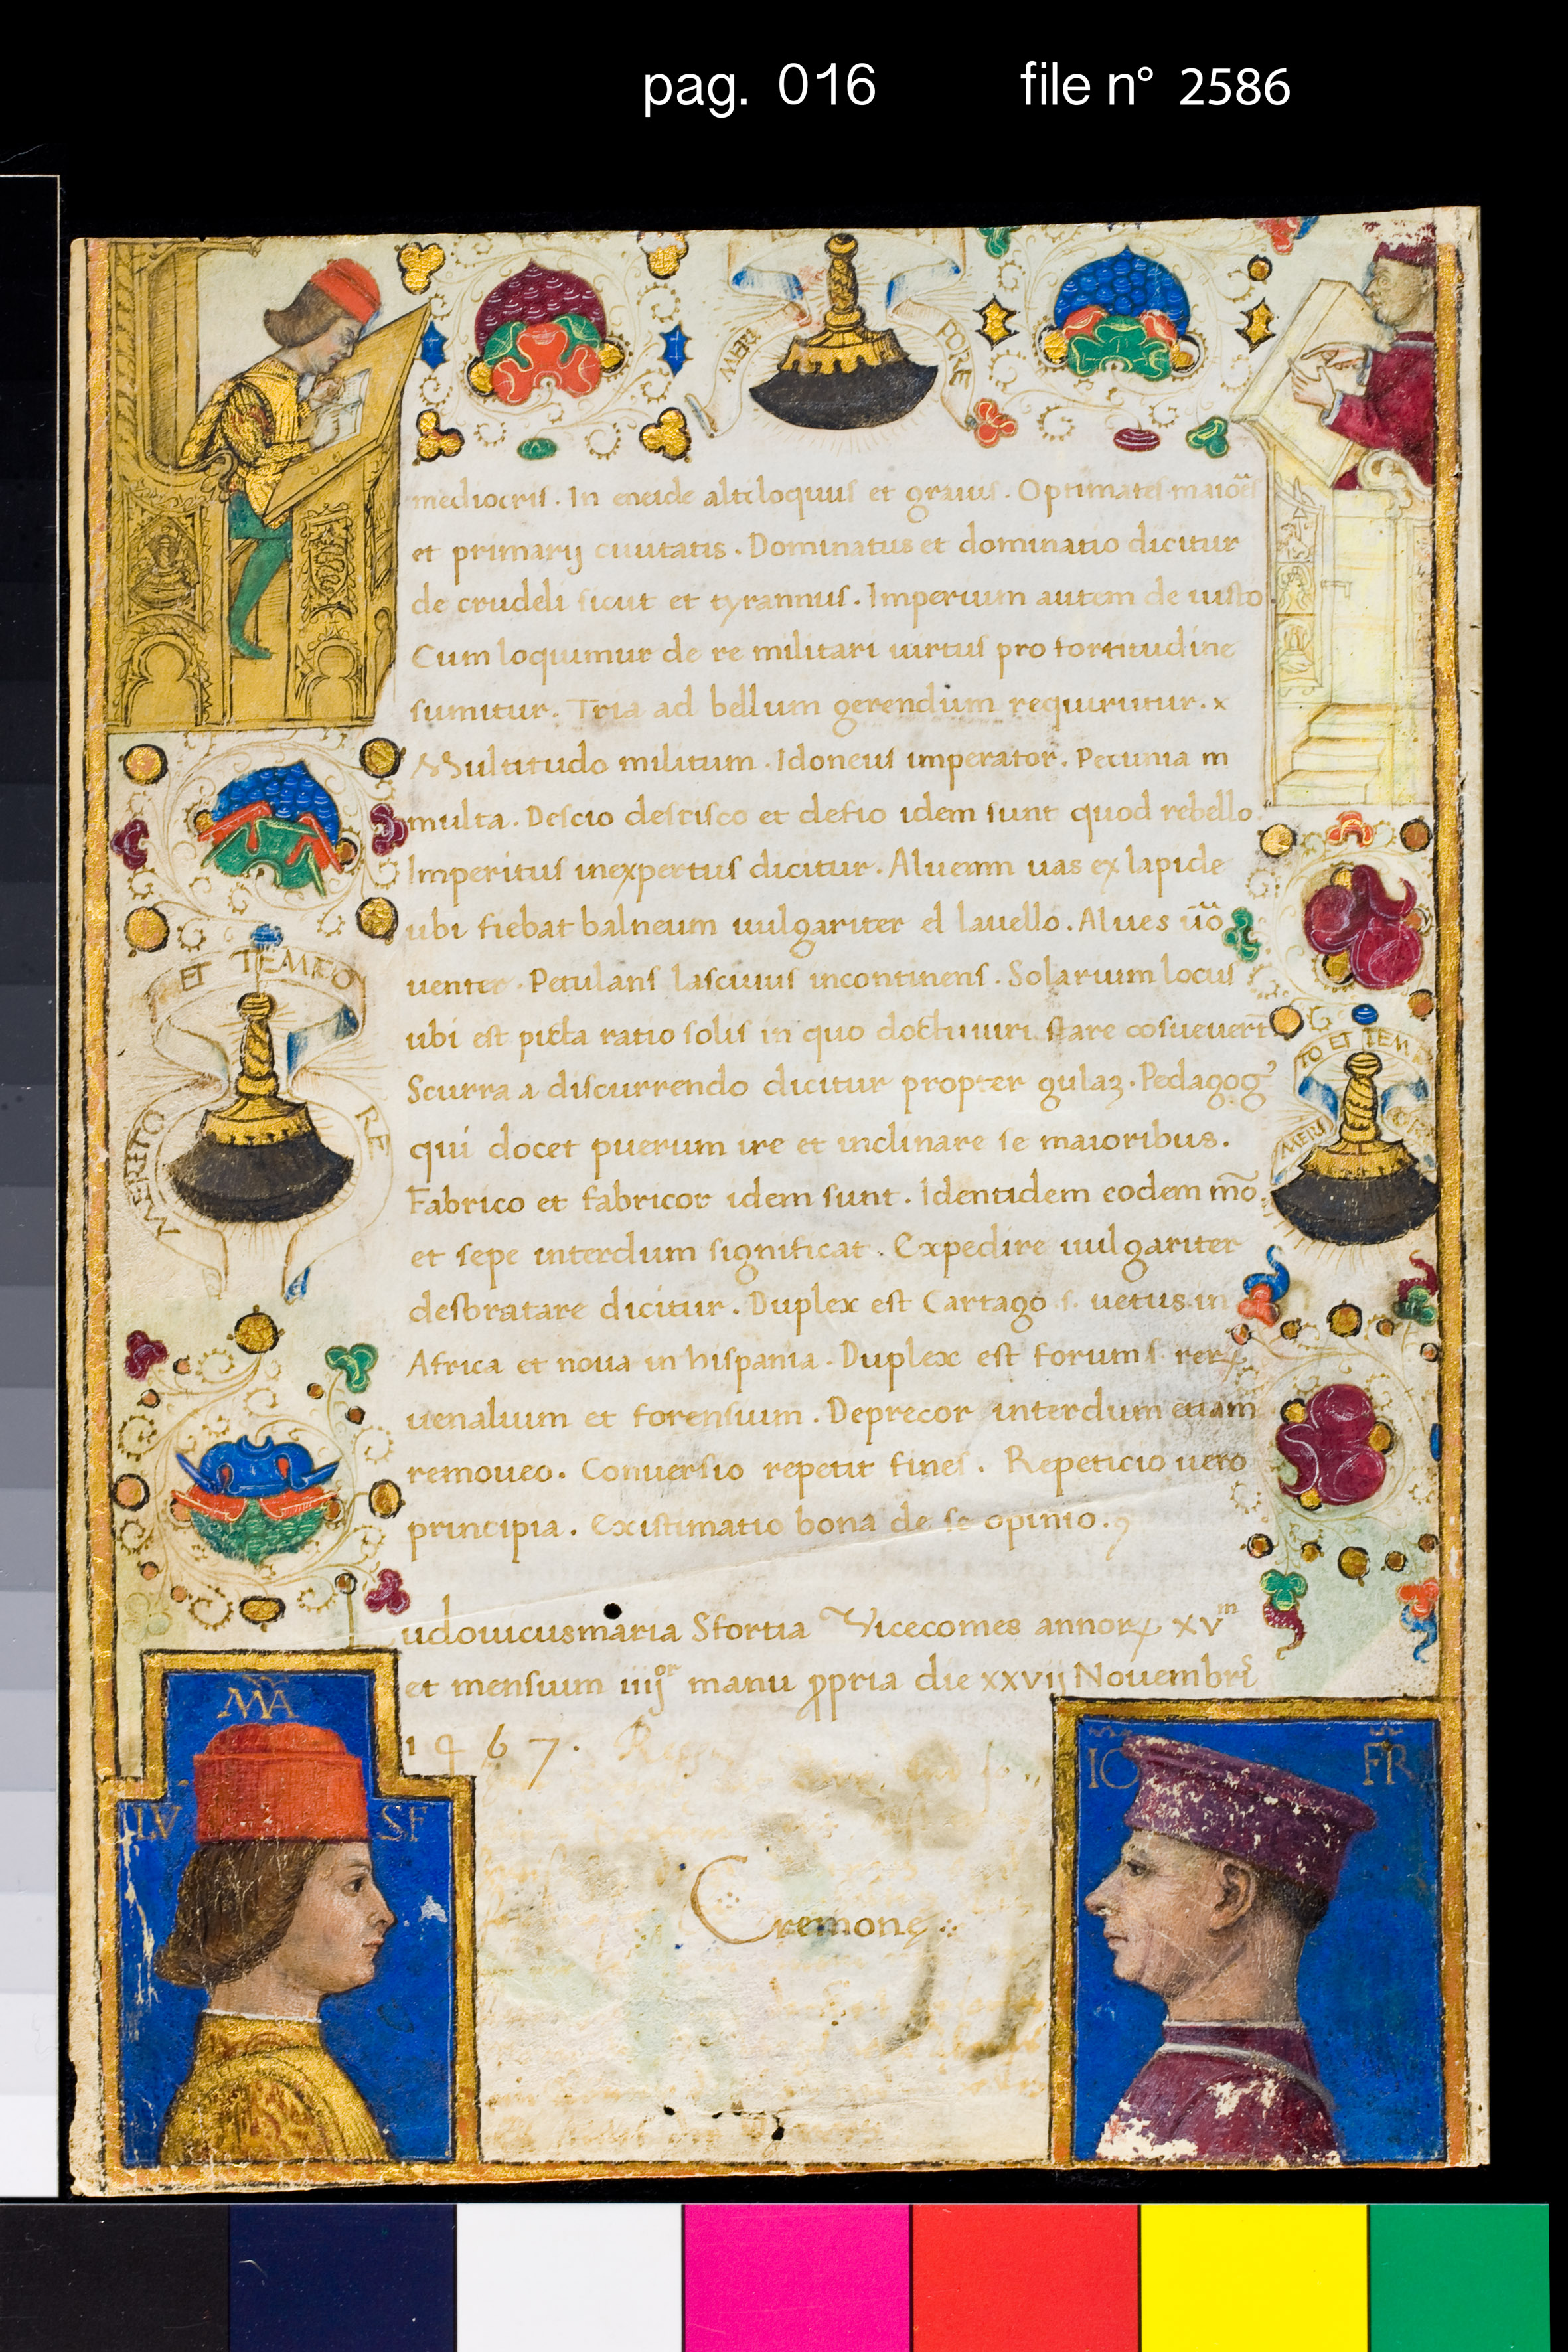 pag. 016 file n° 2586
MERI PORE
mediocris. In eneide altiloquus et grauis. Optimates maiōēs
et primarij ciuitatis. Dominatus et dominatio dicitur
de crudeli sicut et tyrannus. Imperium autem de iusto
Cum loquimur de re militari uirtus pro fortitudine
sumitur. Tria ad bellum gerendum requirutur. x
Multitudo militum. Idoneus imperator. Pecunia m
multa. Descio descisco et defio idem sunt quod rebello.
Imperitus inexpertus dicitur. Alueum uas ex lapide
ubi fiebat balneum uulgariter el lauello. Alues ūo
uenter. Petulans lasciuus incontinens. Solarium locus
ubi est picta ratio solis in quo docti uiri stare cosueuert̄
Scurra a discurrendo dicitur propter gulaꝫ. Pedagogꝰ
qui docet puerum ire et inclinare se maioribus.
Fabrico et fabricor idem sunt. Identidem eodem mō.
et sepe interdum significat. Expedire uulgariter
desbratare dicitur. Duplex est Cartago s. uetus in
Africa et noua in hispania. Duplex est forum s. reꝝ
uenalium et forensium. Deprecor interdum etiam
remoueo. Conuersio repetit fines. Repeticio uero
principia. Existimatio bona de se opinio.
udouicusmaria Sfortia Vicecomes annoꝝ xvᵐ
et mensium iiijᵒʳ manu ꝓpria die xxvij Nouembris
1467.
Cremonę
ET TEMPO
MERITO
RE
TO ET TEM
MERI
MA
LV SF
IO FR